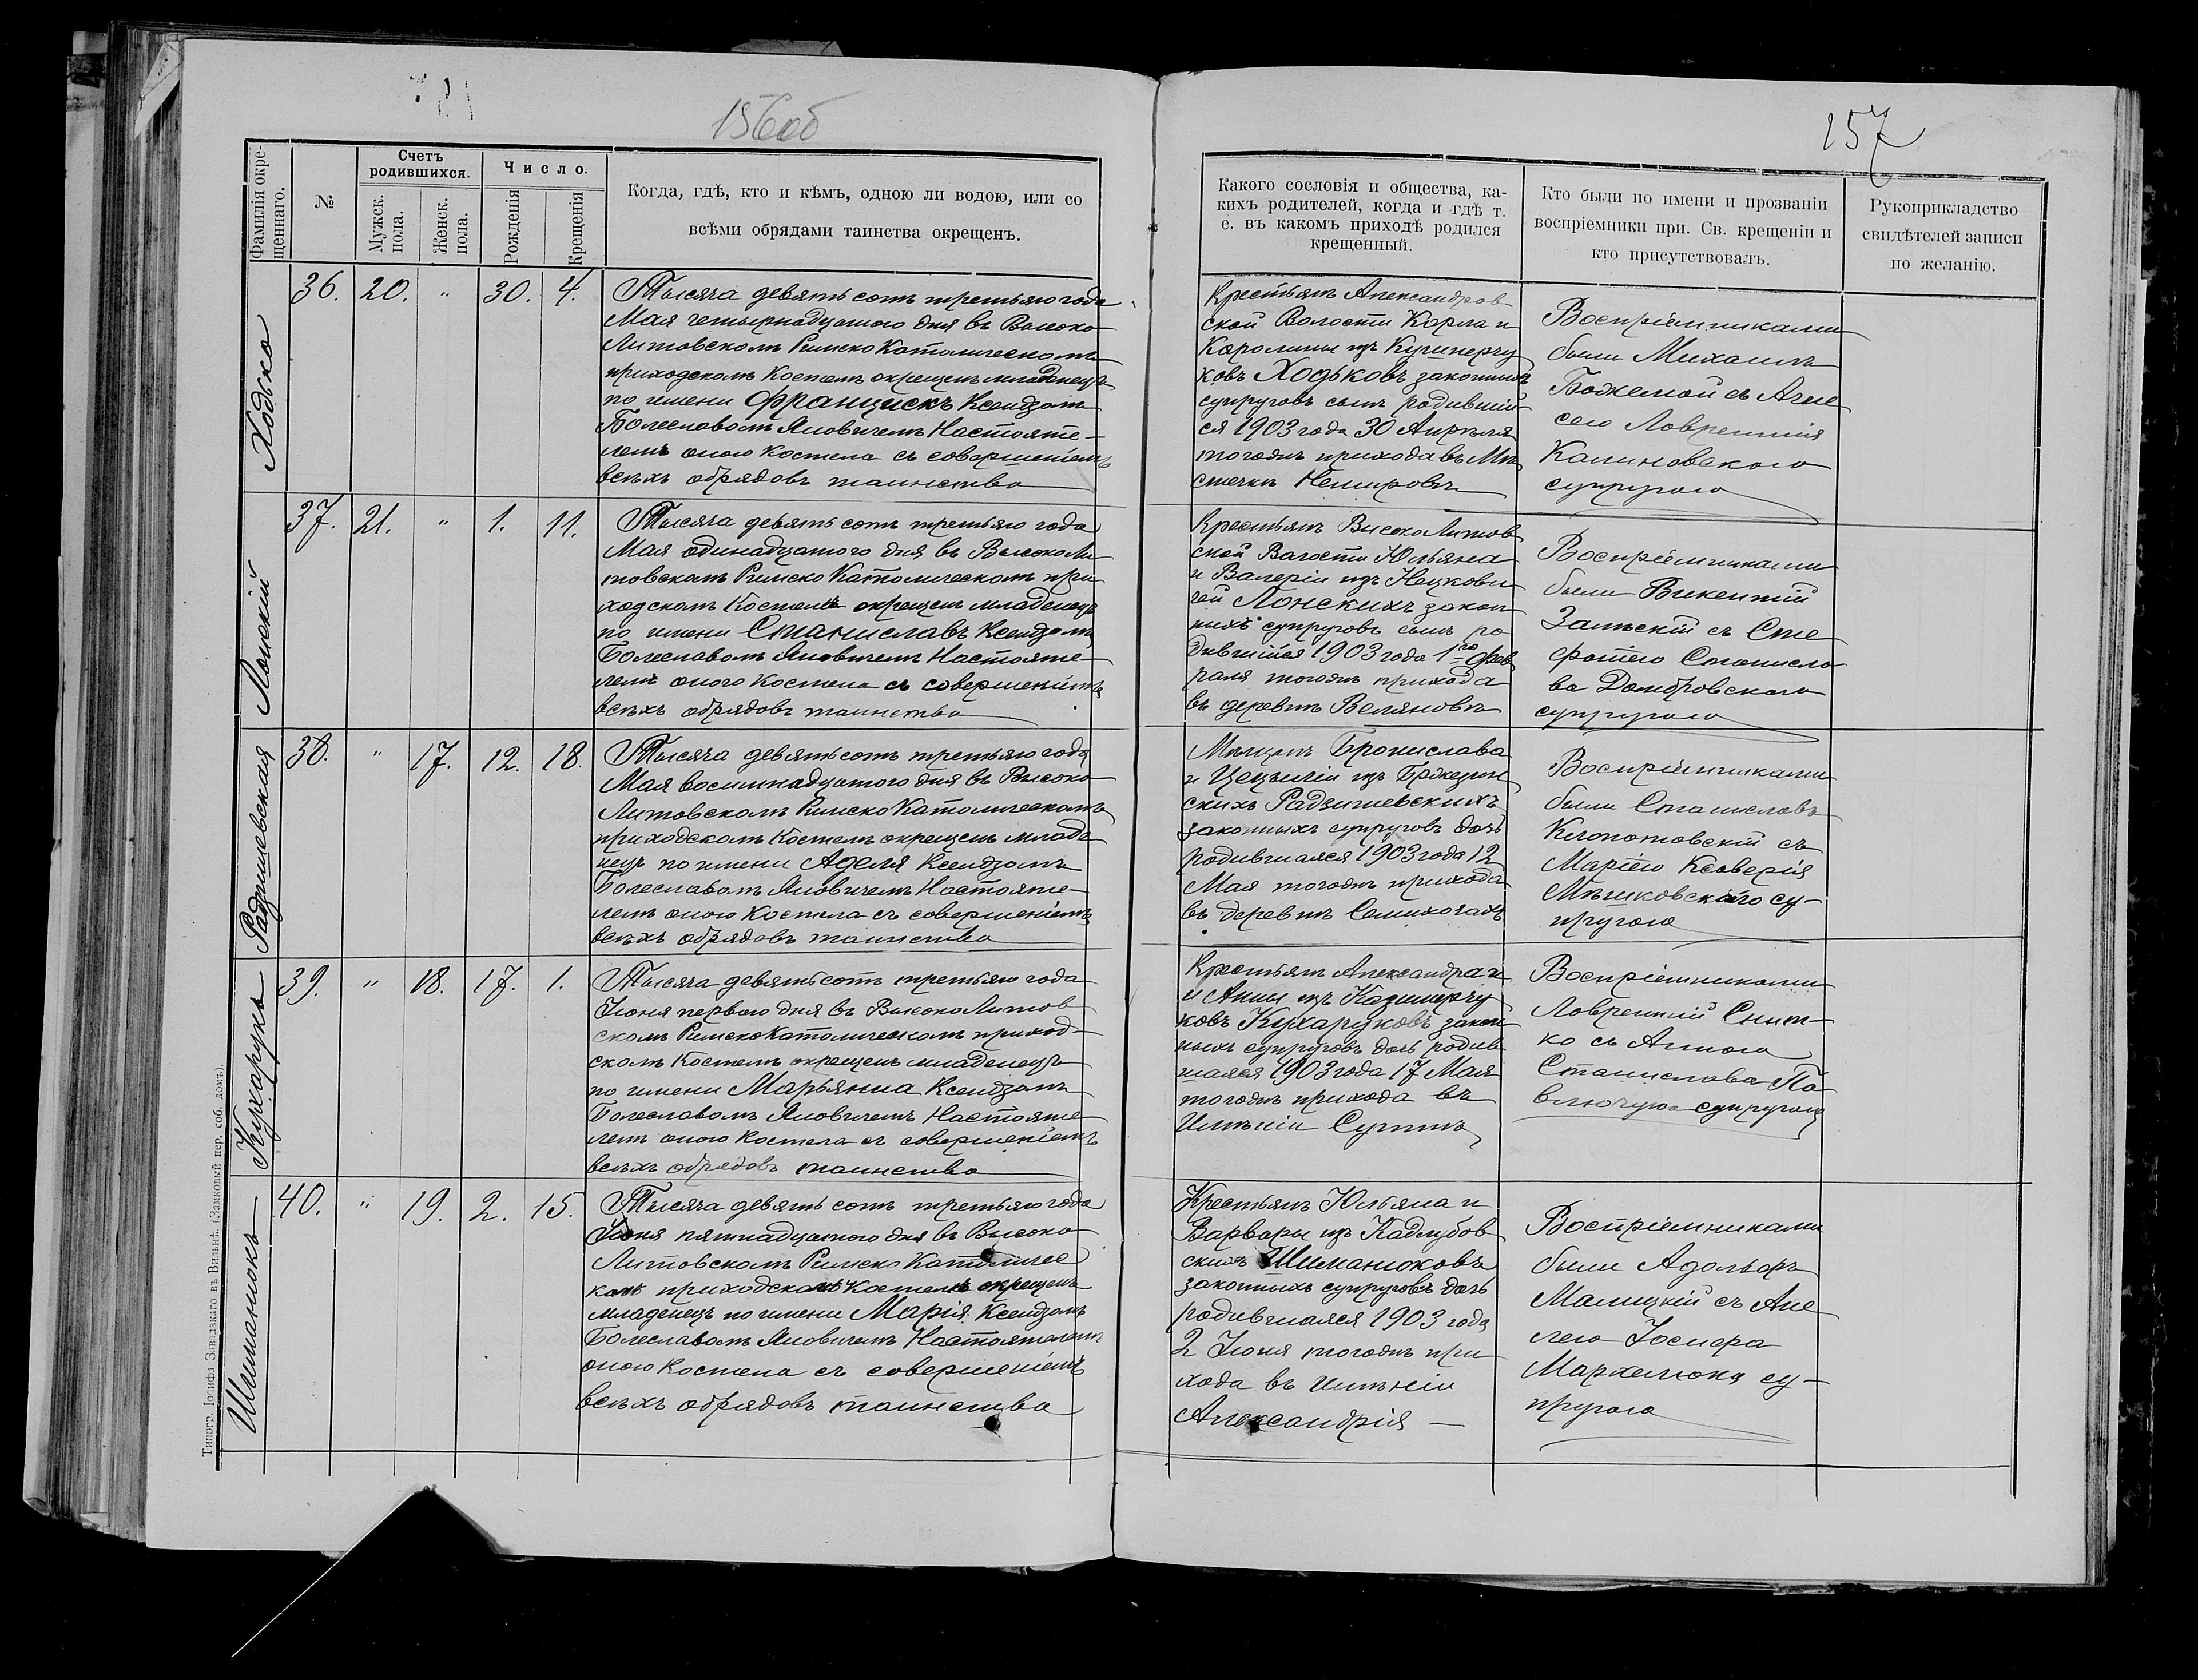 156об
157
Фамилія окре-
щеннаго.
№
Счетъ
родившихся.
Мужск.
пола.
Женск.
пола.
Число.
Рожденія
Крещенія
Когда, гдѣ, кто и кѣмъ, одною ли водою, или со
всѣми обрядами таинства окрещенъ.
Какого сословія и общества, ка-
кихъ родителей, когда и гдѣ т.
е. въ какомъ приходѣ родился
крещенный.
Кто были по имени и прозваніи
воспріемники при. Св. крещеніи и
кто присутствовалъ.
Рукоприкладство
свидѣтелей записи
по желанію.
Ходько
36. 20. " 30. 4.
Тысяча девятьсотъ третьяго года
Мая четырнадцатого дня въ Высоко
Литовскомъ Римско Католическомъ
приходскомъ Костелѣ окрещенъ младенецъ
по имени Францискъ Ксендзомъ
Болеславомъ Яновичемъ Настояте-
лемъ оного Костела съ совершеніемъ
всѣхъ обрядовъ таинства
Крестьянъ Александров-
ской Волости Карла и
Каролины изъ
ковъ Ходьковъ законныхъ
супруговъ сынъ родившій
ся 1903 года 30 Апрѣля
тогожъ прихода въ Мѣ
стечкѣ Немировѣ
Воспріемниками
были Михаилъ
Божемой съ Агне
сею Лаврентія
Калиновского
супругою
Лонскій
37. 21. " 1. 11.
Тысяча девятьсотъ третьяго года
Мая одинадцатого дня въ Высоко Ли
товскомъ Римско Католическомъ при
ходскомъ Костелѣ окрещенъ младенецъ
по имени Станиславъ Ксендзомъ
Болеславомъ Яновичемъ Настояте-
лемъ оного Костела съ совершеніемъ
всѣхъ обрядовъ таинства
Крестьянъ Высоко Литов
ской Волости Юльяна
и Валеріи изъ Нецкови
чей Лонскихъ закон
ныхъ супруговъ сынъ ро
дившійся 1903 года 1го Фев
раля тогожъ прихода
въ деревнѣ Веляновѣ
Воспріемниками
были Викентій
Залѣскій съ Сте
фаніею Станисла
ва Домбровскаго
супругою
Радзишевская
38. " 17. 12. 18.
Тысяча девятьсотъ третьяго года
Мая восемнадцатого дня въ Высоко
Литовскомъ Римско Католическомъ
приходскомъ Костелѣ окрещенъ младе
нецъ по имени Аделя Ксендзомъ
Болеславомъ Яновичемъ Настояте-
лемъ оного Костела съ совершеніемъ
всѣхъ обрядовъ таинства
Мѣщанъ Бронислава
и Цециліи изъ Бржезин
скихъ Радзишевскихъ
законныхъ супруговъ дочь
родившаяся 1903 года 12
Мая тогожъ прихода
въ деревнѣ Семихочахъ
Воспріемниками
были Станиславъ
Клопотовскій съ
Маріею Ксаверія
Мѣшковскаго су-
пругою
Кухарукъ
39. " 18. 17. 1.
Тысяча девятьсотъ третьяго года
Іюня первого дня въ Высоко Литов
скомъ Римско Католическомъ приход-
скомъ Костелѣ окрещенъ младенецъ
по имени Марьянна Ксендзомъ
Болеславомъ Яновичемъ Настояте
лемъ оного Костела съ совершеніемъ
всѣхъ обрядовъ таинства
Крестьянъ Александра и
и Анны изъ Казимерчу
ковъ Кухаруковъ закон
ныхъ супруговъ дочь родив
шаяся 1903 года 17 Мая
тогожъ прихода въ
Имѣніи
Воспріемниками
Лаврентій Снит-
ко съ Анною
Станислава Па
супругою
Шиманюкъ
40. " 19. 2. 15.
Тысяча девятьсотъ третьяго года
Іюня пятнадцатого дня въ Высоко
Литовскомъ Римско Католичес
комъ приходскомъ Костелѣ окрещенъ
младенецъ по имени Марія Ксендзомъ
Болеславомъ Яновичемъ Настоятелемъ
оного Костела съ совершеніемъ
всѣхъ обрядовъ таинства
Крестьянъ Юльяна и
Варвары изъ Кадлубов
скихъ Шиманюковъ
законныхъ супруговъ дочь
родившаяся 1903 года
2 Іюня тогожъ при
хода въ имѣніи
Александрія
Воспріемниками
были Адольфъ
Малицкій съ Апе
лею Іосифа
Мархелюка су-
пругою
Типогр. Іосифа Завадзкаго въ Вильнѣ. (Замковый пер. соб. домъ).